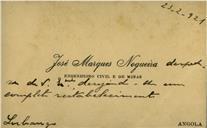 23-2-921
José Marques Nogueira despede-
ENGENHEIRO CIVIL E DE MINAS
se de V. Excia desejando-lhe um
completo restabelecimento
Lubango
ANGOLA